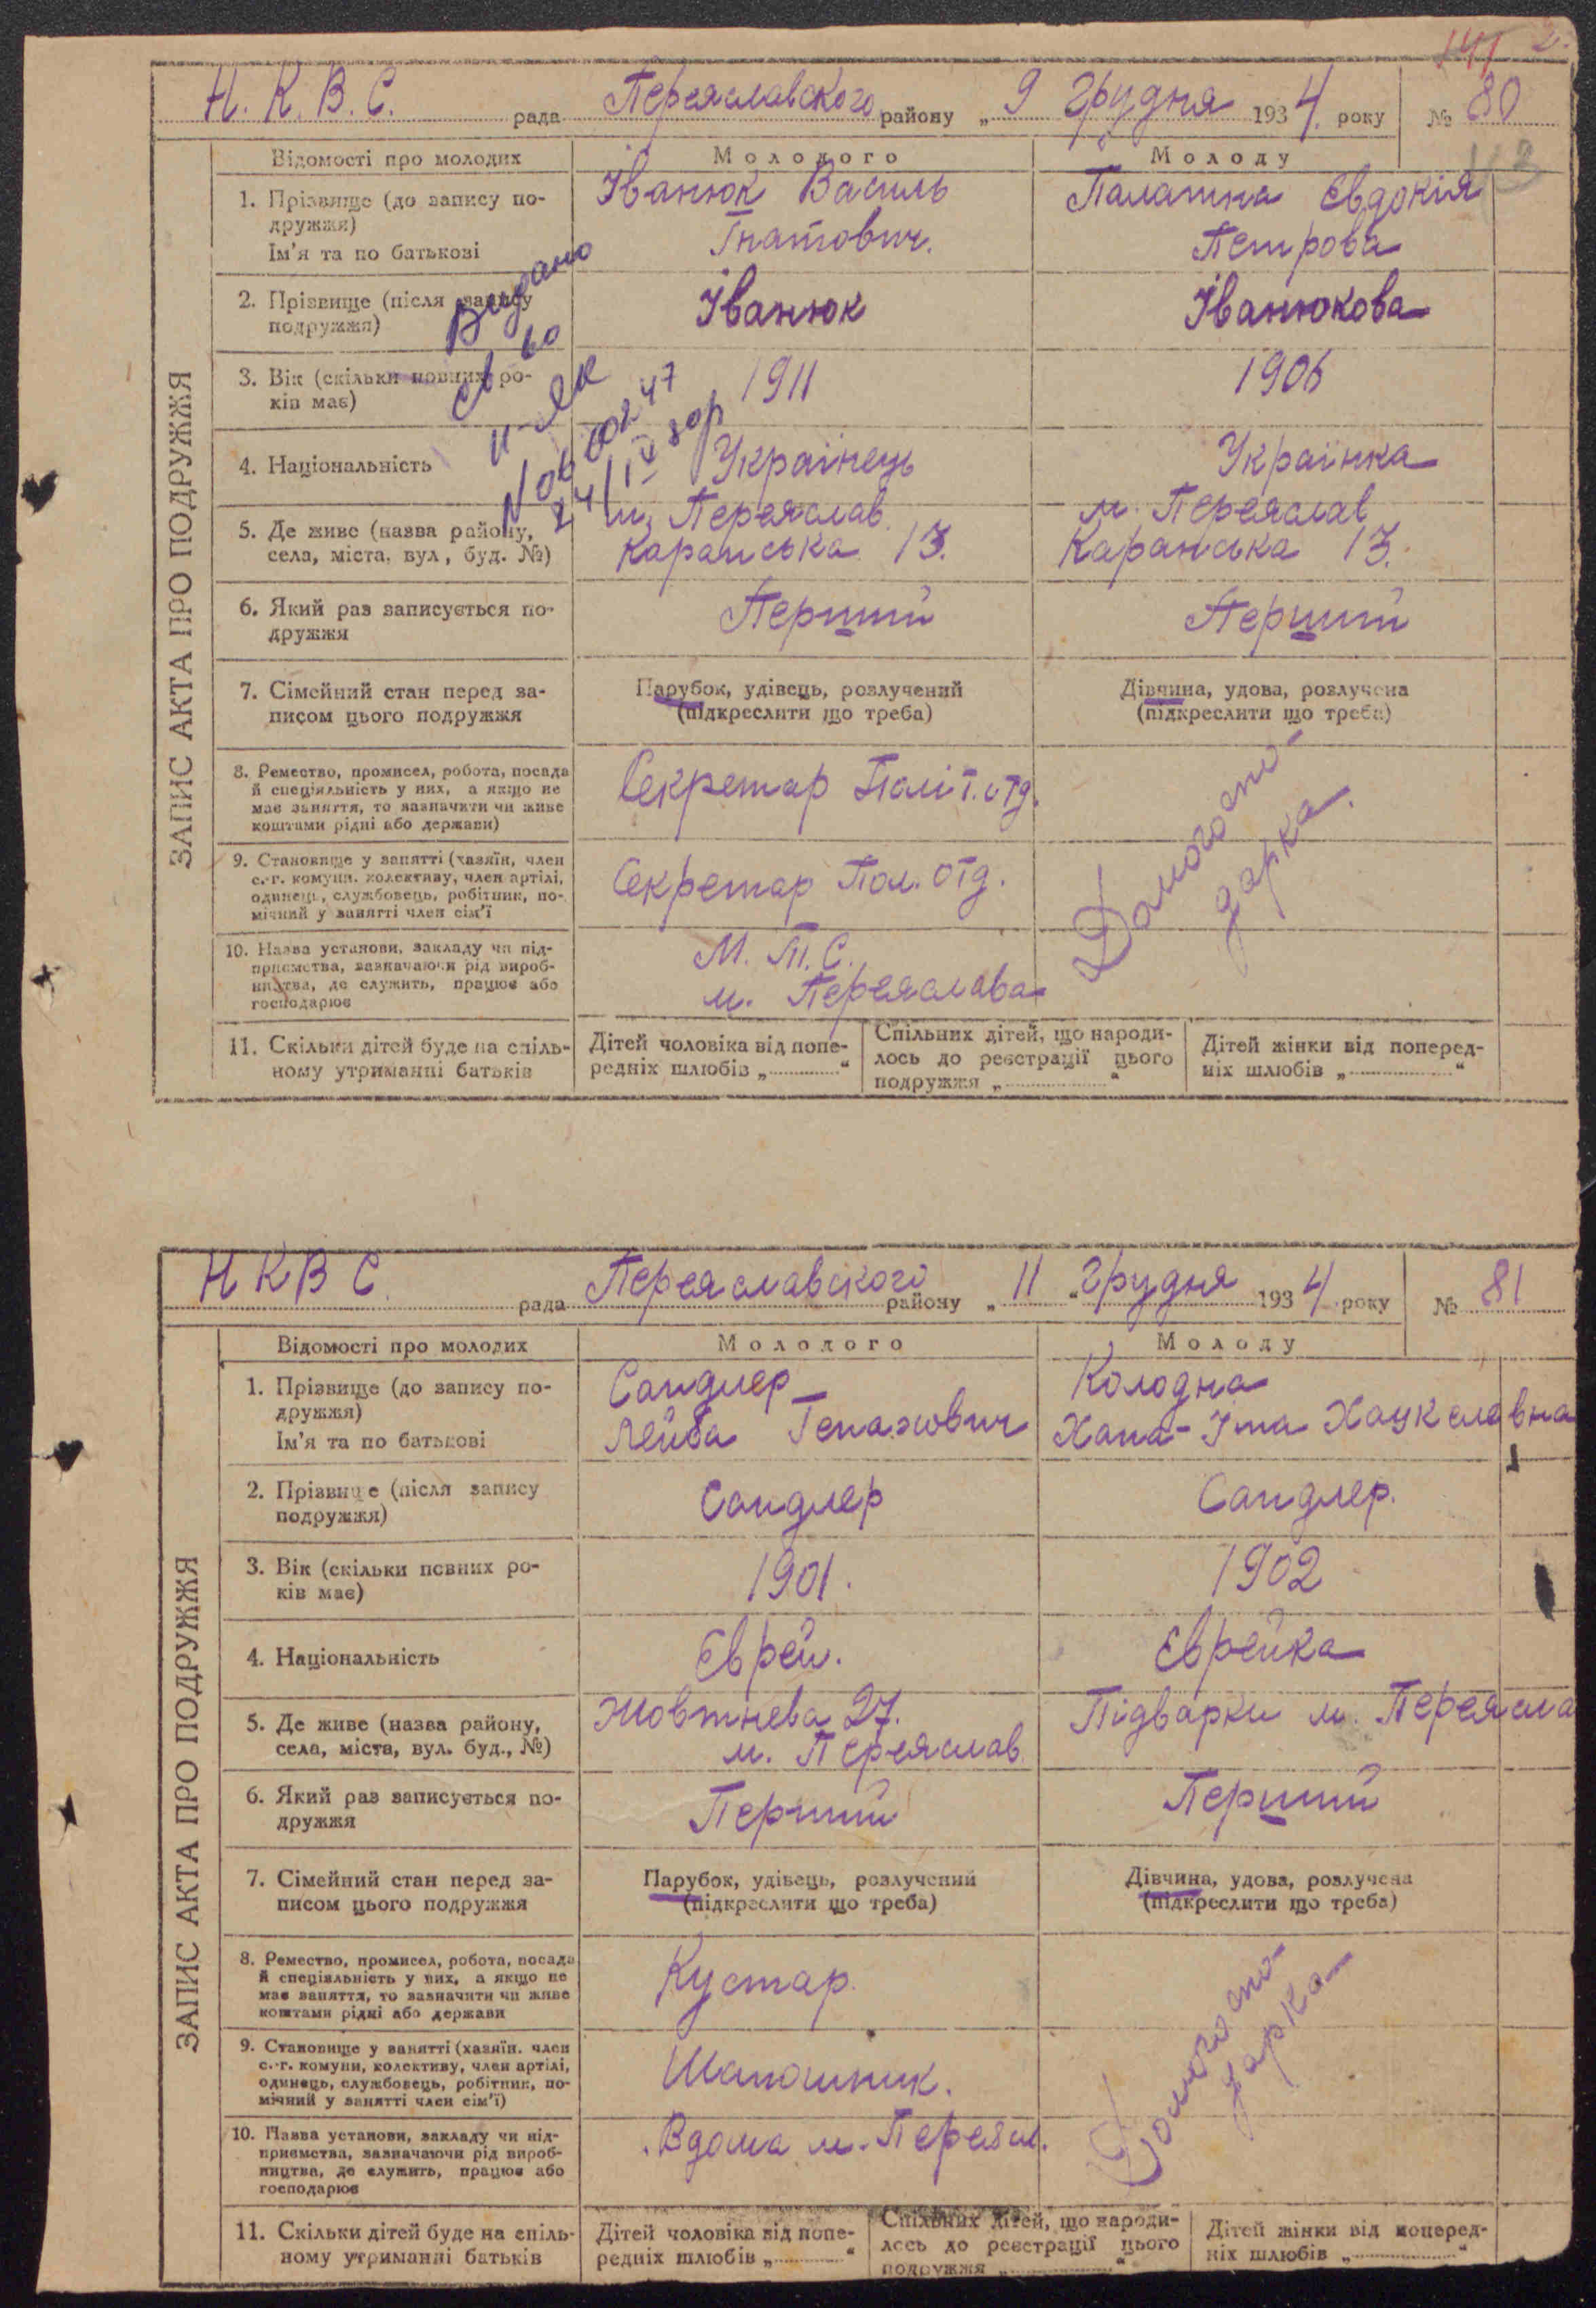 141
Н. К. В. С. рада Переяславского району „ 9 Грудня 1934 року № 80
Відомості про молодих
Молодого
Молоду
ЗАПИС АКТА ПРО ПОДРУЖЖЯ
1. Прізвище (до запису по-
дружжя)
Ім'я та по батькові
Іванюк Василь
Гнатович.
Палатна Євдокія
Петрова
2. Прізвище (після запису
подружжя)
Іванюк
Іванюкова
Видано
св во
3. Вік (скільки повних ро-
ків має)
1911
1906
4. Національність
Українець
Українка
5. Де живе (назва району,
села, міста, вул, буд. №)
м. Переяслав
Каранська 13.
м. Переяслав
Каранська 13.
6. Який раз записується по-
дружжя
Перший
Перший
7. Сімейний стан перед за-
писом цього подружжя
Парубок, удівець, розлучений
(підкреслити що треба)
Дівчина, удова, розлучена
(підкреслити що треба)
8. Ремество, промисел, робота, посада
й спеціяльність у них, а якщо не
має заняття, то зазначити чи живе
коштами рідні або держави)
Секретар Політ. отд.
Домогоспо-
дарка.
9. Становище у занятті (хазяїн, член
с.-г. комуни, колективу, член артілі,
одинець, службовець, робітник, по-
мічний у занятті член сім'ї
Секретар Пол. отд.
10. Назва установи, закладу чи під-
приємства, зазначаючи рід вироб-
ництва, де служить, працює або
господарює
М. Т. С.
м. Переяслава
11. Скільки дітей буде на спіль-
ному утриманні батьків
Дітей чоловіка від попе-
редніх шлюбів „ “
Спільних дітей, що народи-
лось до реєстрації цього
подружжя „ “
Дітей жінки від поперед-
ніх шлюбів „ “
Н К В С рада Переяславского району „ 11 “ Грудня 1934 року № 81
Відомості про молодих
Молодого
Молоду
ЗАПИС АКТА ПРО ПОДРУЖЖЯ
1. Прізвище (до запису по-
дружжя)
Ім'я та по батькові
Сандлер
Лейба
Колодна
Хана-Іта
2. Прізвище (після запису
подружжя)
Сандлер
Сандлер.
3. Вік (скільки повних ро-
ків має)
1901.
1902
4. Національність
Єврей.
Єврейка
5. Де живе (назва району,
села, міста, вул. буд., №)
Жовтнева 27.
м. Переяслав
Підварки м. Переясла
6. Який раз записується по-
дружжя
Перший
Перший
7. Сімейний стан перед за-
писом цього подружжя
Парубок, удівець, розлучений
(підкреслити що треба)
Дівчина, удова, розлучена
(підкреслити що треба)
8. Ремество, промисел, робота, посада
й спеціяльність у них, а якщо не
має заняття, то зазначити чи живе
коштами рідні або держави
Кустар.
Домогоспо-
дарка
9. Становище у занятті (хазяїн. член
с.-г. комуни, колективу, член артілі,
одинець, службовець, робітник, по-
мічний у занятті член сім'ї)
Шапошник.
10. Назва установи, закладу чи під-
приємства, зазначаючи рід вироб-
ництва, де служить, працює або
господарює
Вдома м. Переясл.
11. Скільки дітей буде на спіль-
ному утриманні батьків
Дітей чоловіка від попе-
редніх шлюбів „ “
Спільних дітей, що народи-
лось до реєстрації цього
подружжя „ “
Дітей жінки від поперед-
ніх шлюбів „ “